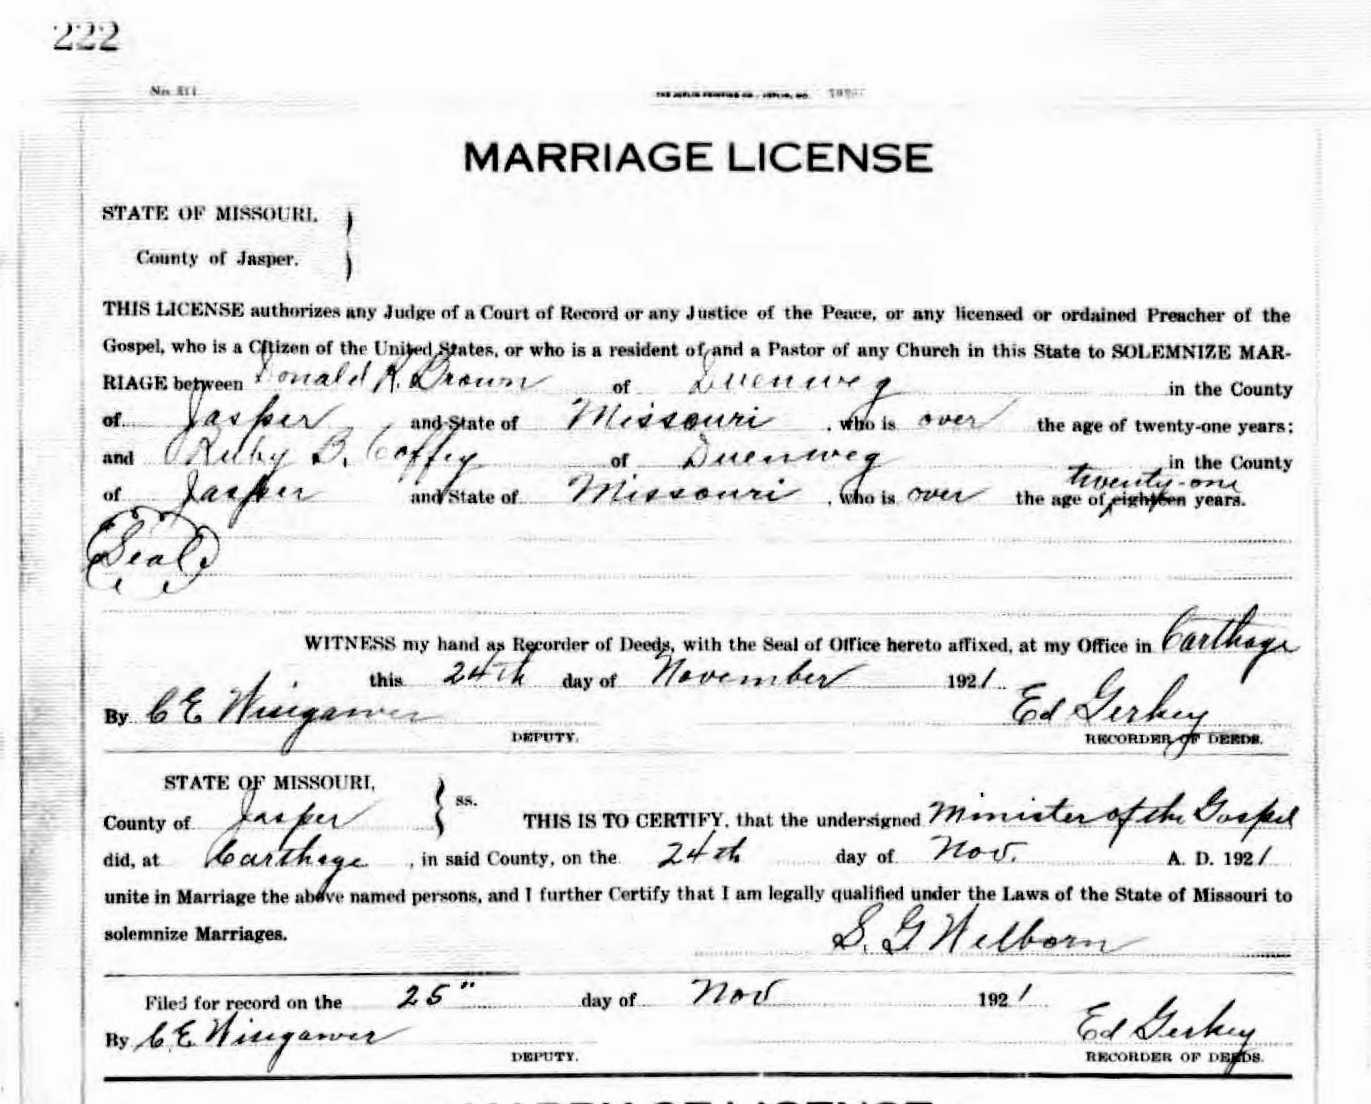 222
No. 311
THE JOPLIN PRINTING CO., JOPLIN, MO.
MARRIAGE LICENSE
STATE OF MISSOURI,
County of Jasper.
THIS LICENSE authorizes any Judge of a Court of Record or any Justice of the Peace, or any licensed or ordained Preacher of the
Gospel, who is a Citizen of the United States, or who is a resident of and a Pastor of any Church in this State to SOLEMNIZE MAR-
RIAGE between Donald K. Brown of Duenweg in the County
of Jasper and State of Missouri , who is over the age of twenty-one years;
and Ruby B. Coffey of Duenweg in the County
twenty-one
of Jasper and State of Missouri , who is over the age of eighteen years.
Seal
WITNESS my hand as Recorder of Deeds, with the Seal of Office hereto affixed, at my Office in Carthage
this 24th day of November 1921
By C E Ed Gerkey
DEPUTY. RECORDER OF DEEDS.
STATE OF MISSOURI,
County of Jasper ss. THIS IS TO CERTIFY, that the undersigned Minister of the Gospel
did, at Carthage , in said County, on the 24th day of Nov. A. D. 1921
unite in Marriage the above named persons, and I further Certify that I am legally qualified under the Laws of the State of Missouri to
solemnize Marriages.
S. G Welborn
Filed for record on the 25" day of Nov 1921
By C. E. Ed Gerkey
DEPUTY. RECORDER OF DEEDS.